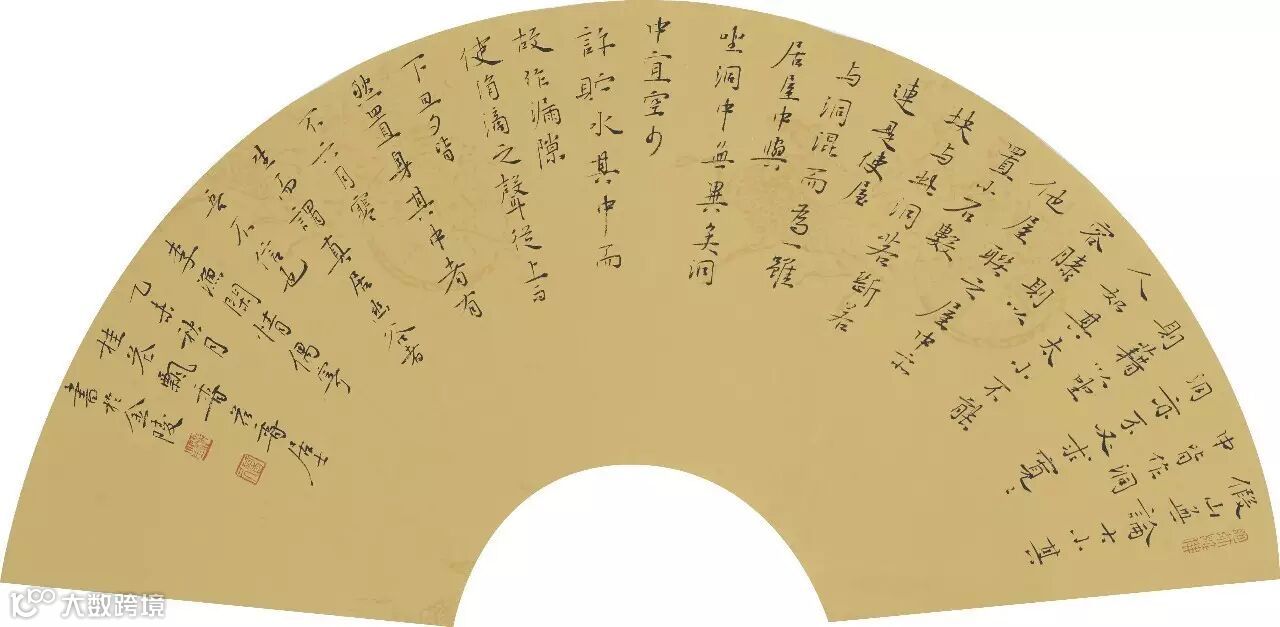 假山無論大小其
中皆作洞
洞亦不必求寬〻
則藉以坐
人如其太小不能
容膝則以
他屋聯之屋中亦
置小石數
塊与此洞若斷若
連是使屋
与洞混而為一雖
居屋中與
坐洞中無異矣洞
中宜空少
許貯水其中而
故作漏隙
使涓滴之聲從上而
下旦夕皆
然置身其中者有
不六月寒
生而謂真居幽谷者
吾不信也
李漁閑情偶寄
乙未秋月
桂飄香居士
書於金陵
大数跨境